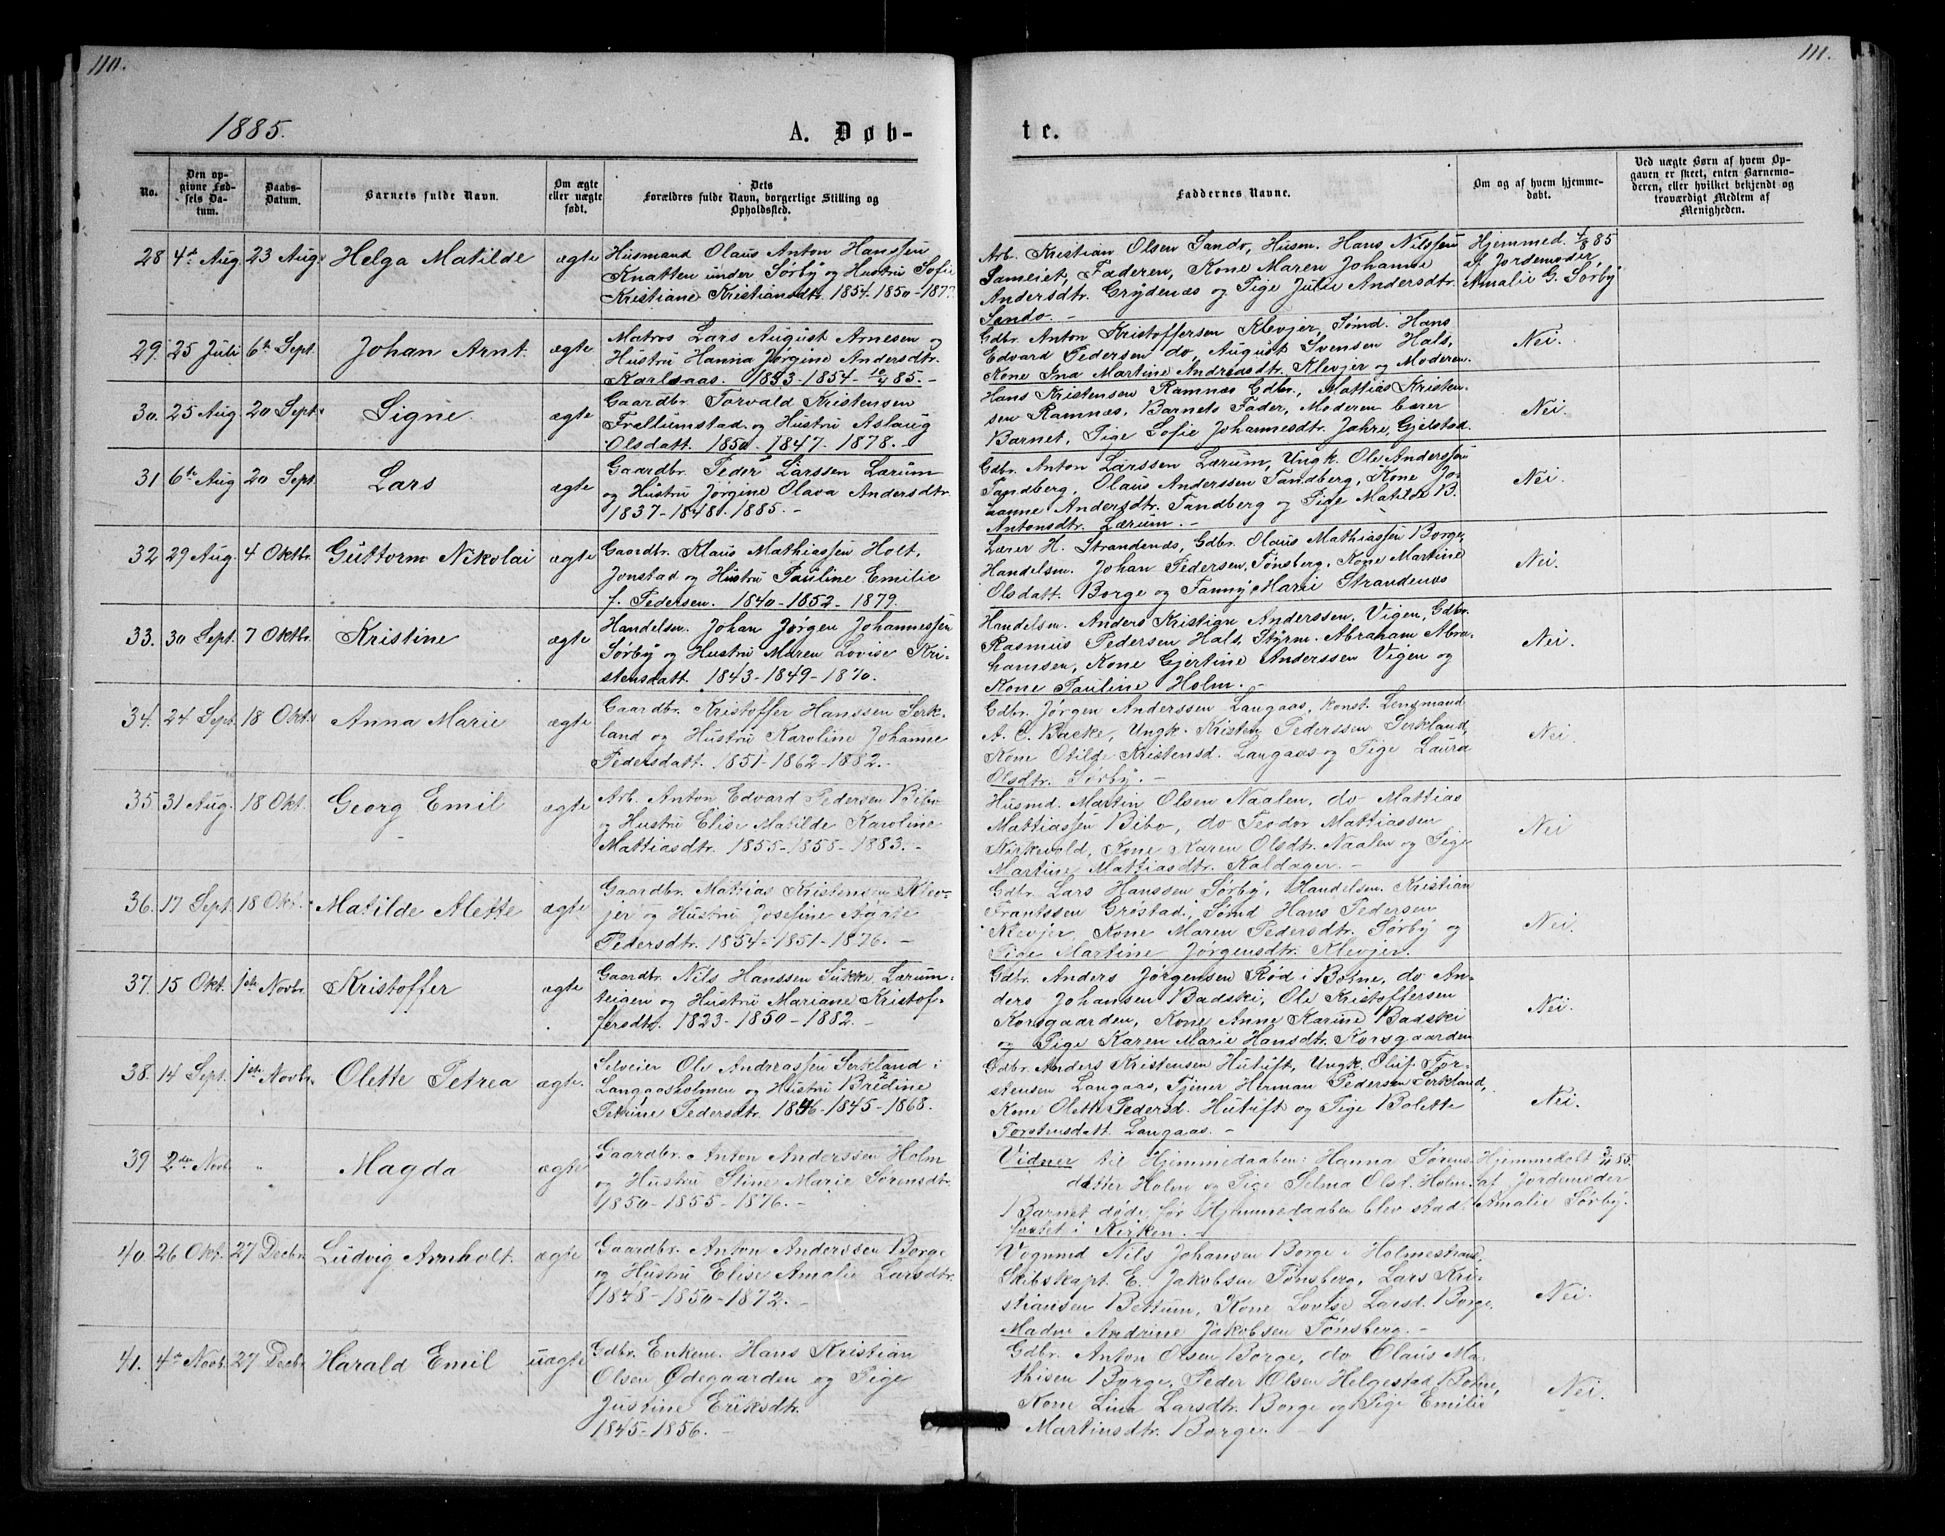 110.
111.
1885.
A. Døb-
te.
No.
Den op-
givne Fød-
sels Da-
tum.
Daabs-
Datum.
Barnets fulde Navn.
Om ægte
eller uægte
født.
Dets
Forældres fulde Navn, borgerlige Stilling og
Opholdssted.
Faddernes Navne.
Om og af hvem hjemme-
døbt.
Ved uægte Børn af hvem Op-
gaven er skeet, enten Barnemo-
deren, eller hvilket bekjendt og
troværdigt Medlem af
Menigheden.
28 4de Aug. 23 Aug. Helga Matilde ægte
Husmand Olaus Anton Hanssen
Knatten under Sørby og Hustru Sofie
Kristiane Kristiansdtr. 1854. 1850 - 187
Arb. Kristian Olsen Sando, Husm. Hans Nilssen
Sameiet, Faderen, Kone Maren Johanne
Andersdtr. Grydenæs og Pige Julie Andersdtr.
Sando. -
Hjemmed. 4/8 85
af Jordemoder
Amalie G. Sørby
29. 25 Juli 6te Sept. Johan Arnt. ægte
Matros Lars August Arnesen og
Hustru Hanna Jørgine Andersdtr.
Karlsaas. 1853 - 1854 - 10/4 85. -
Gdbr. Anton Kristoffersen Klevjer, Sømd. Hans
Edvard Pedersen do, August Svensen Hals,
Kone Ina Martine Andreasdtr. Klevjer og Moderen.
Nei.
30. 25 Aug. 20 Sept. Signe ægte
Gaardbr. Torvald Kristensen
Frellumstad og Hustru Aslaug
Olsdatt. 1850. 1847. 1878. -
Hans Kristensen Ramnæs Gdbr., Mattias Kristen-
sen Ramnæs, Barnets Fader, Moderen bærer
Barnet, Pige Sofie Johannesdtr. Jahre, Gjelstad.
Nei.
31 6te Aug 20 Sept. Lars ægte
Gaardbr. Peder Larssen Lærum
og Hustru Jørgine Olava Andersdtr.
1837 - 1848. 1885. -
Gdbr. Anton Larssen Lærum, Ungk. Ole Anderssen
Tandberg, Olaus Anderssen Tandberg, Kone Jo-
hanne Andersdtr. Tandberg og Pige Matilde B.
Antonsdtr. Lærum. -
Nei.
32 29 Aug. 4 Oktbr. Guttorm Nikolai ægte
Gaardbr. Klaus Mathiassen Holt,
Jonstad og Hustru Pauline Emilie
f. Pedersen. 1840 - 1852 - 1879.
Lærer H. Strandenæs, Gdbr. Olaus Mathiassen Borge,
Handelsm. Johan Pedersen, Tønsberg. Kone Martine
Olsdatt. Borge og Fanny Marie Strandenæs
Nei.
33. 30 Sept. 7 Oktbr. Kristine ægte
Handelsm. Johan Jørgen Johannessen
Sørby og Hustru Maren Lovise Kri-
stensdatt. 1843 - 1849 - 1870.
Handelsm. Anders Kristian Anderssen, Vigen, Gdbr.
Rasmus Pedersen Hals, Styrm. Abraham Abra-
hamsen, Kone Gjertine Anderssen Vigen og
Kone Pauline Holm. -
Nei.
34. 24 Sept. 18 Okt. Anna Marie ægte
Gaardbr. Kristoffer Hanssen Serk-
land og Hustru Karoline Johanne
Pedersdatt. 1851 - 1862 - 1882. -
Gdbr. Jørgen Anderssen Langaas, Konst. Lensmand
A. C. Backe, Ungk. Kristen Pederssen Serkland,
Kone Otilde Kristensd. Langaas og Pige Laura
Olsdtr. Sørby. -
Nei.
35. 31 Aug. 18 Okt. Georg Emil ægte
Arb. Anton Edvard Pedersen Bibo
og Hustru Elise Matilde Karoline
Mattiasdtr. 1855 - 1858 - 1883. -
Husmd. Martin Olsen Naalen, do Mattias
Mattiassen Bibo, do Teodor Mattiassen
Kirkevold, Kone Karen Olsdtr. Naalen og Pige
Martine Mattiasdtr. Kaldager. -
Nei
36. 17 Sept. 18 Okt. Matilde Alette ægte
Gaardbr. Mattias Kristensen Klev-
jer og Hustru Josefine Agate
Pedersdtr. 1854 - 1851 - 1876. -
Gdbr. Lars Hanssen Sørby, Handelsm. Kristian
Frantssen Grøstad, Sømd Hans Pedersen
Klevjer, Kone Maren Pedersdtr. Sørby og
Pige Martine Jørgensdtr. Klevjer.
Nei.
37. 15 Okt. 1ste Novbr. Kristoffer ægte
Gaardbr. Nils Hanssen Sukke Lærum-
teigen og Hustru Mariane Kristof-
fersdtr. 1823 - 1850 - 1882. -
Gdbr. Anders Jørgensen Rød i Botne, do An-
ders Johansen Badski, Ole Kristoffersen
Korsgaarden, Kone Anne Karine Badski
og Pige Karen Marie Hansdtr. Korsgaarden
Nei.
38. 14 Sept. 1ste Novbr. Olette Petrea ægte.
Selveier Ole Andreassen Serkland i
Langaasholmen og Hustru Bredine
Petrine Pedersdtr. 1846 - 1845 - 1868.
Gdbr. Anders Kristensen Hutuft, Ungk. Oluf Tor-
stensen Langaas, Tjener Herman Pedersen Serkland,
Kone Olette Pedersd. Hutuft og Pige Bolette
Torstensdatt. Langaas. -
Nei.
39 2den Novb. " Magda ægte
Gaardbr. Anton Anderssen Holm
og Hustru Stine Marie Sørensdtr.
1850 - 1855 - 1876. -
Vidner til Hjemmedaaben: Hanna Sørens-
datter Holm og Pige Selma Olsd. Holm.
Barnet døde, før Hjemmedaaben blev stad-
fæstet i Kirken. -
Hjemmedøbt 3/11 85.
af Jordemoder
Amalie Sørby.
40. 26 Okt. 27 Decbr. Ludvig Arnholt. ægte
Gaardbr. Anton Anderssen Borge
og Hustru Elise Amalie Larsdtr.
1848 - 1850 - 1872. -
Vognmd Nils Johansen Borge i Holmestrand,
Skibskapt. E. Jakobsen Tønsberg, Lars Kri-
stiansen Bettum, Kone Lovise Larsd. Borge,
Madm Andrine Jakobsen Tønsberg. -
Nei.
41. 4de Novb. 27 Decbr. Harald Emil uægte
Gdbr. Enkem. Hans Kristian
Olsen Ødegaarden og Pige
Justine Eriksdtr.
1845 - 1856. -
Gdbr. Anton Olsen Borge, do Olaus Ma-
thisen Borge, Peder Olsen Helgestad Botne,
Kone Lina Larsdtr. Borge og Pige Emilie
Martinsdtr. Borge. -
Nei.